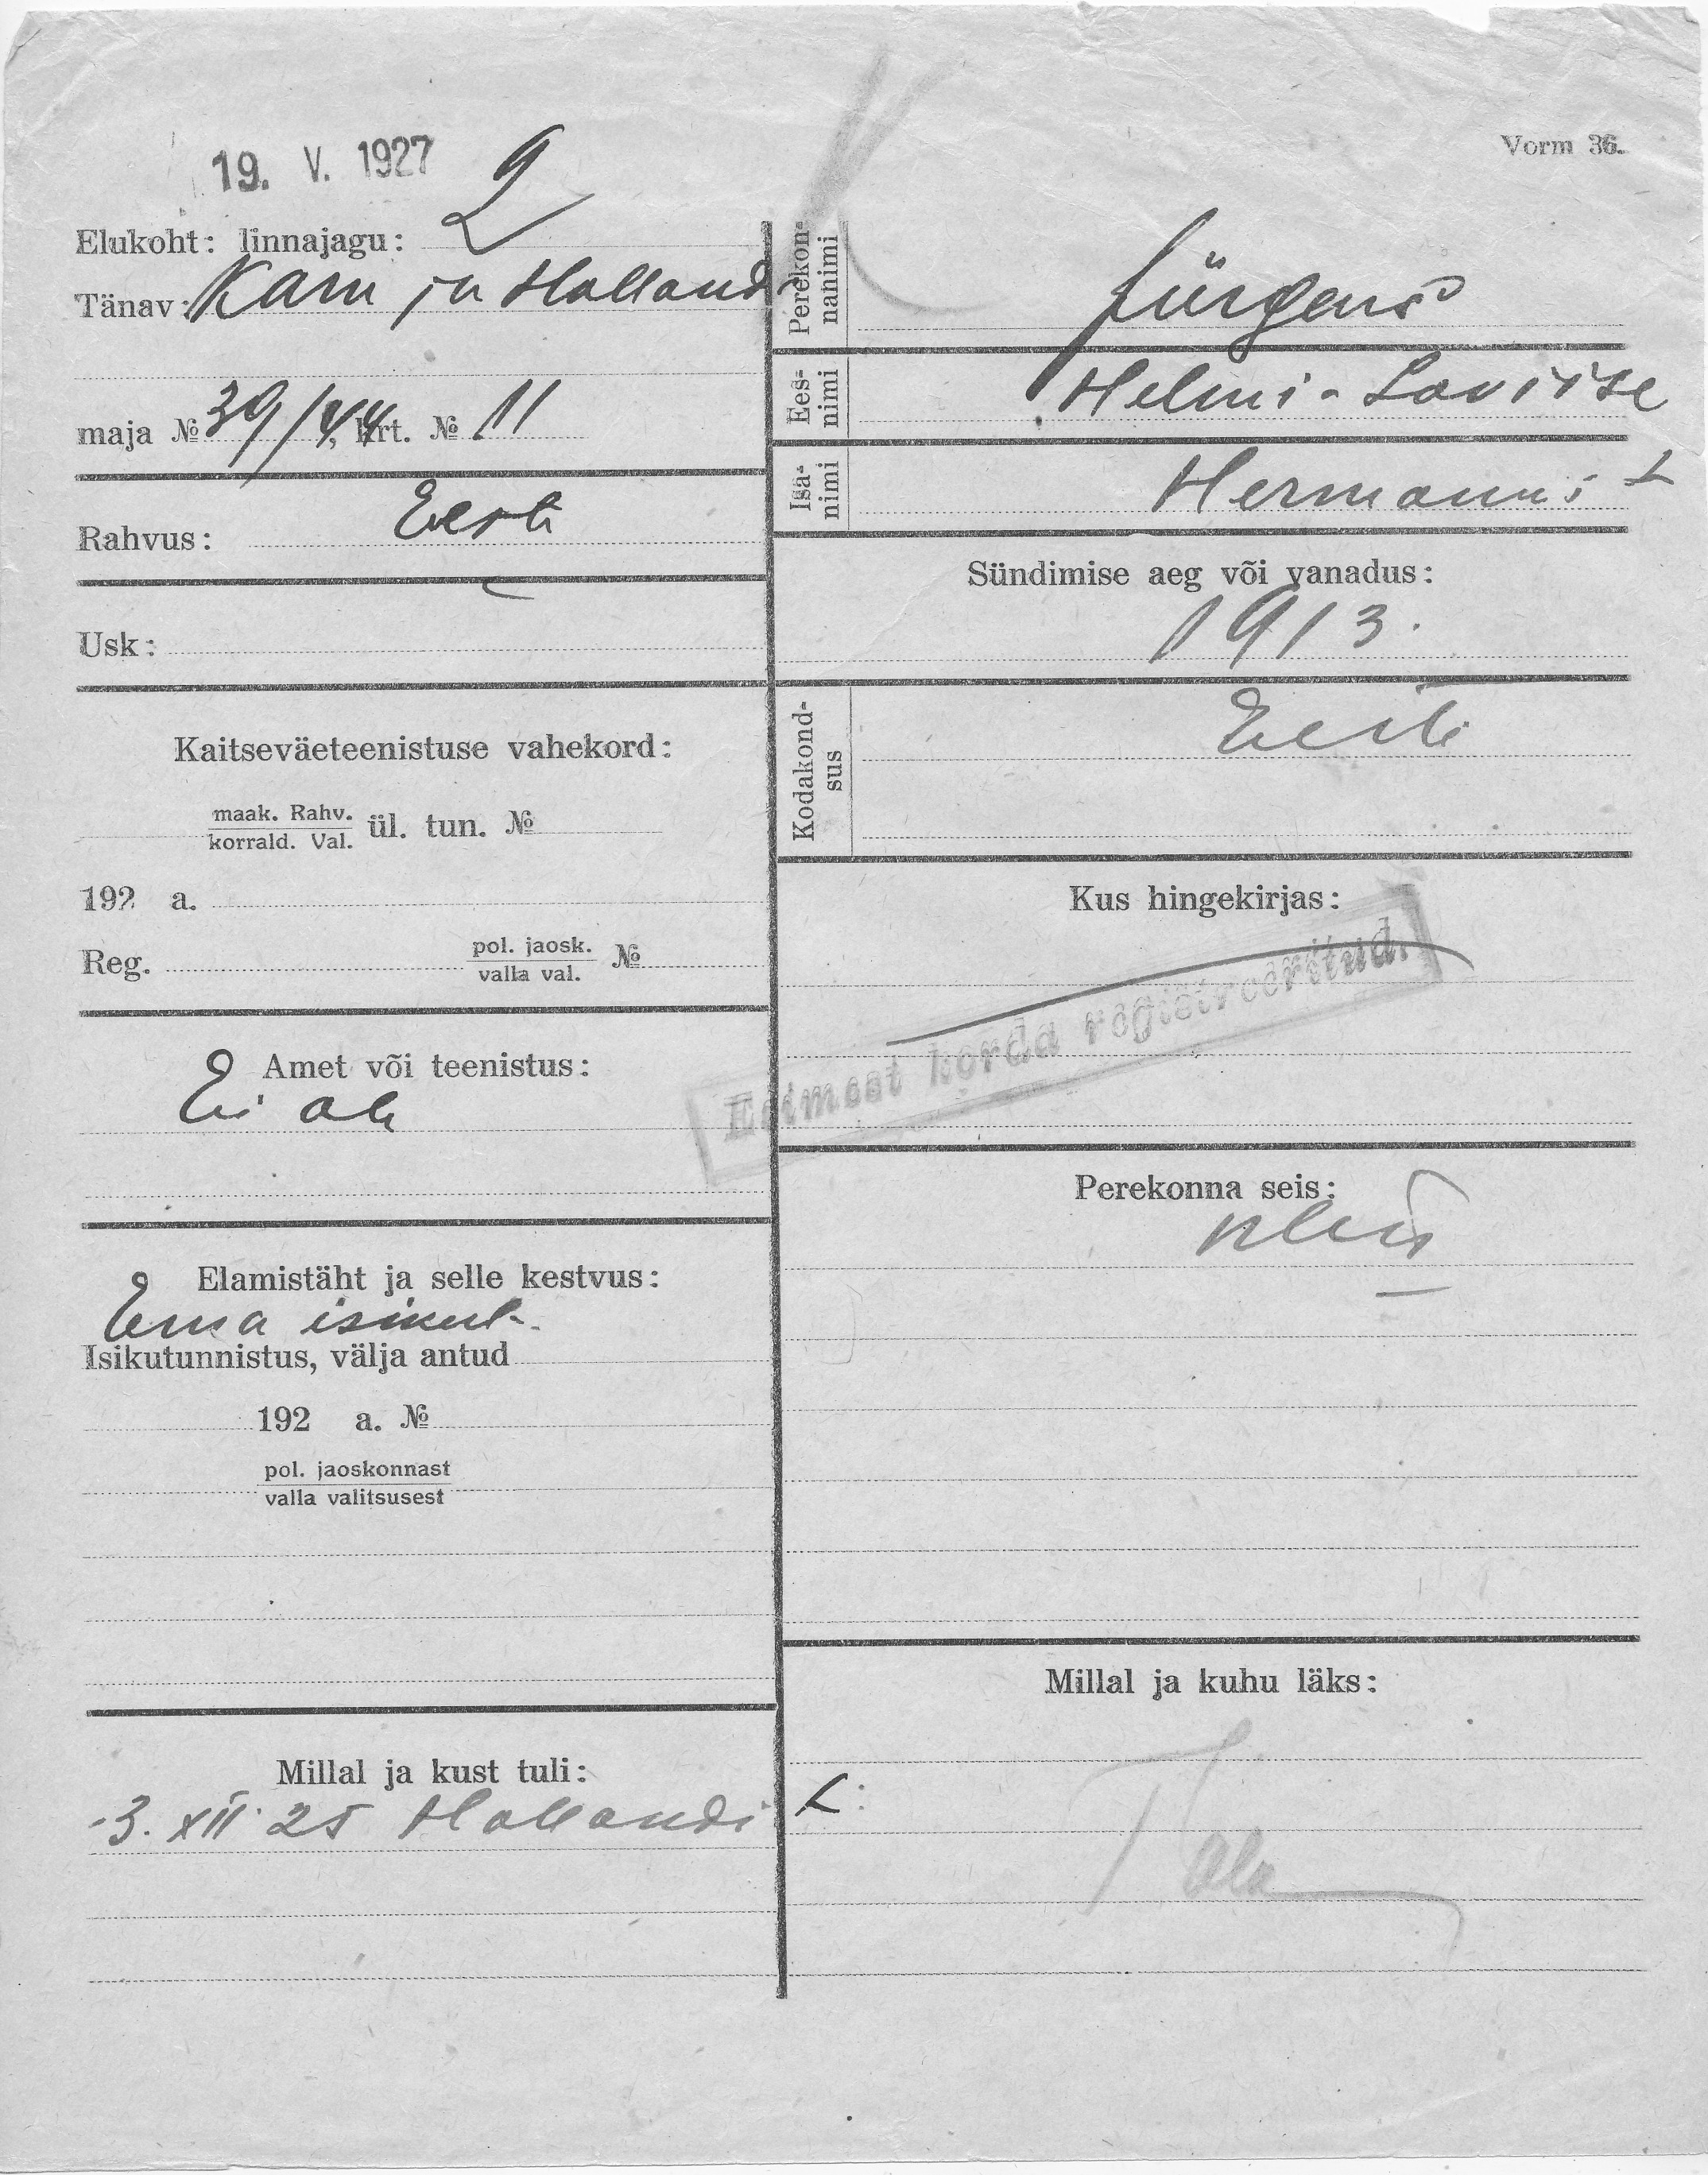 19. V. 1927
Vorm 36.
Elukoht: linnajagu: 2
Tänav: Karu ja Holland
maja № 39/44, krt. № 11
Rahvus: Eesti
Usk:
Kaitseväeteenistuse vahekord:
maak. Rahv.
korrald. Val. ül. tun. №
192 a.
Reg. pol. jaosk. №
valla val.
Amet või teenistus:
Ei ole
Elamistäht ja selle kestvus:
Ema isikut.
Isikutunnistus, välja antud
192 a. №
pol. jaoskonnast
valla valitsusest
Millal ja kust tuli:
3. XII 25 Hollandi
Perekon-
nanimi Jürgens
Ees-
nimi Helmi-Loviise
Isa-
nimi Hermanni t
Sündimise aeg või vanadus:
1913.
Kodakond-
sus Eesti
Kus hingekirjas:
Esimest korda registreeritud.
Perekonna seis:
Millal ja kuhu läks: